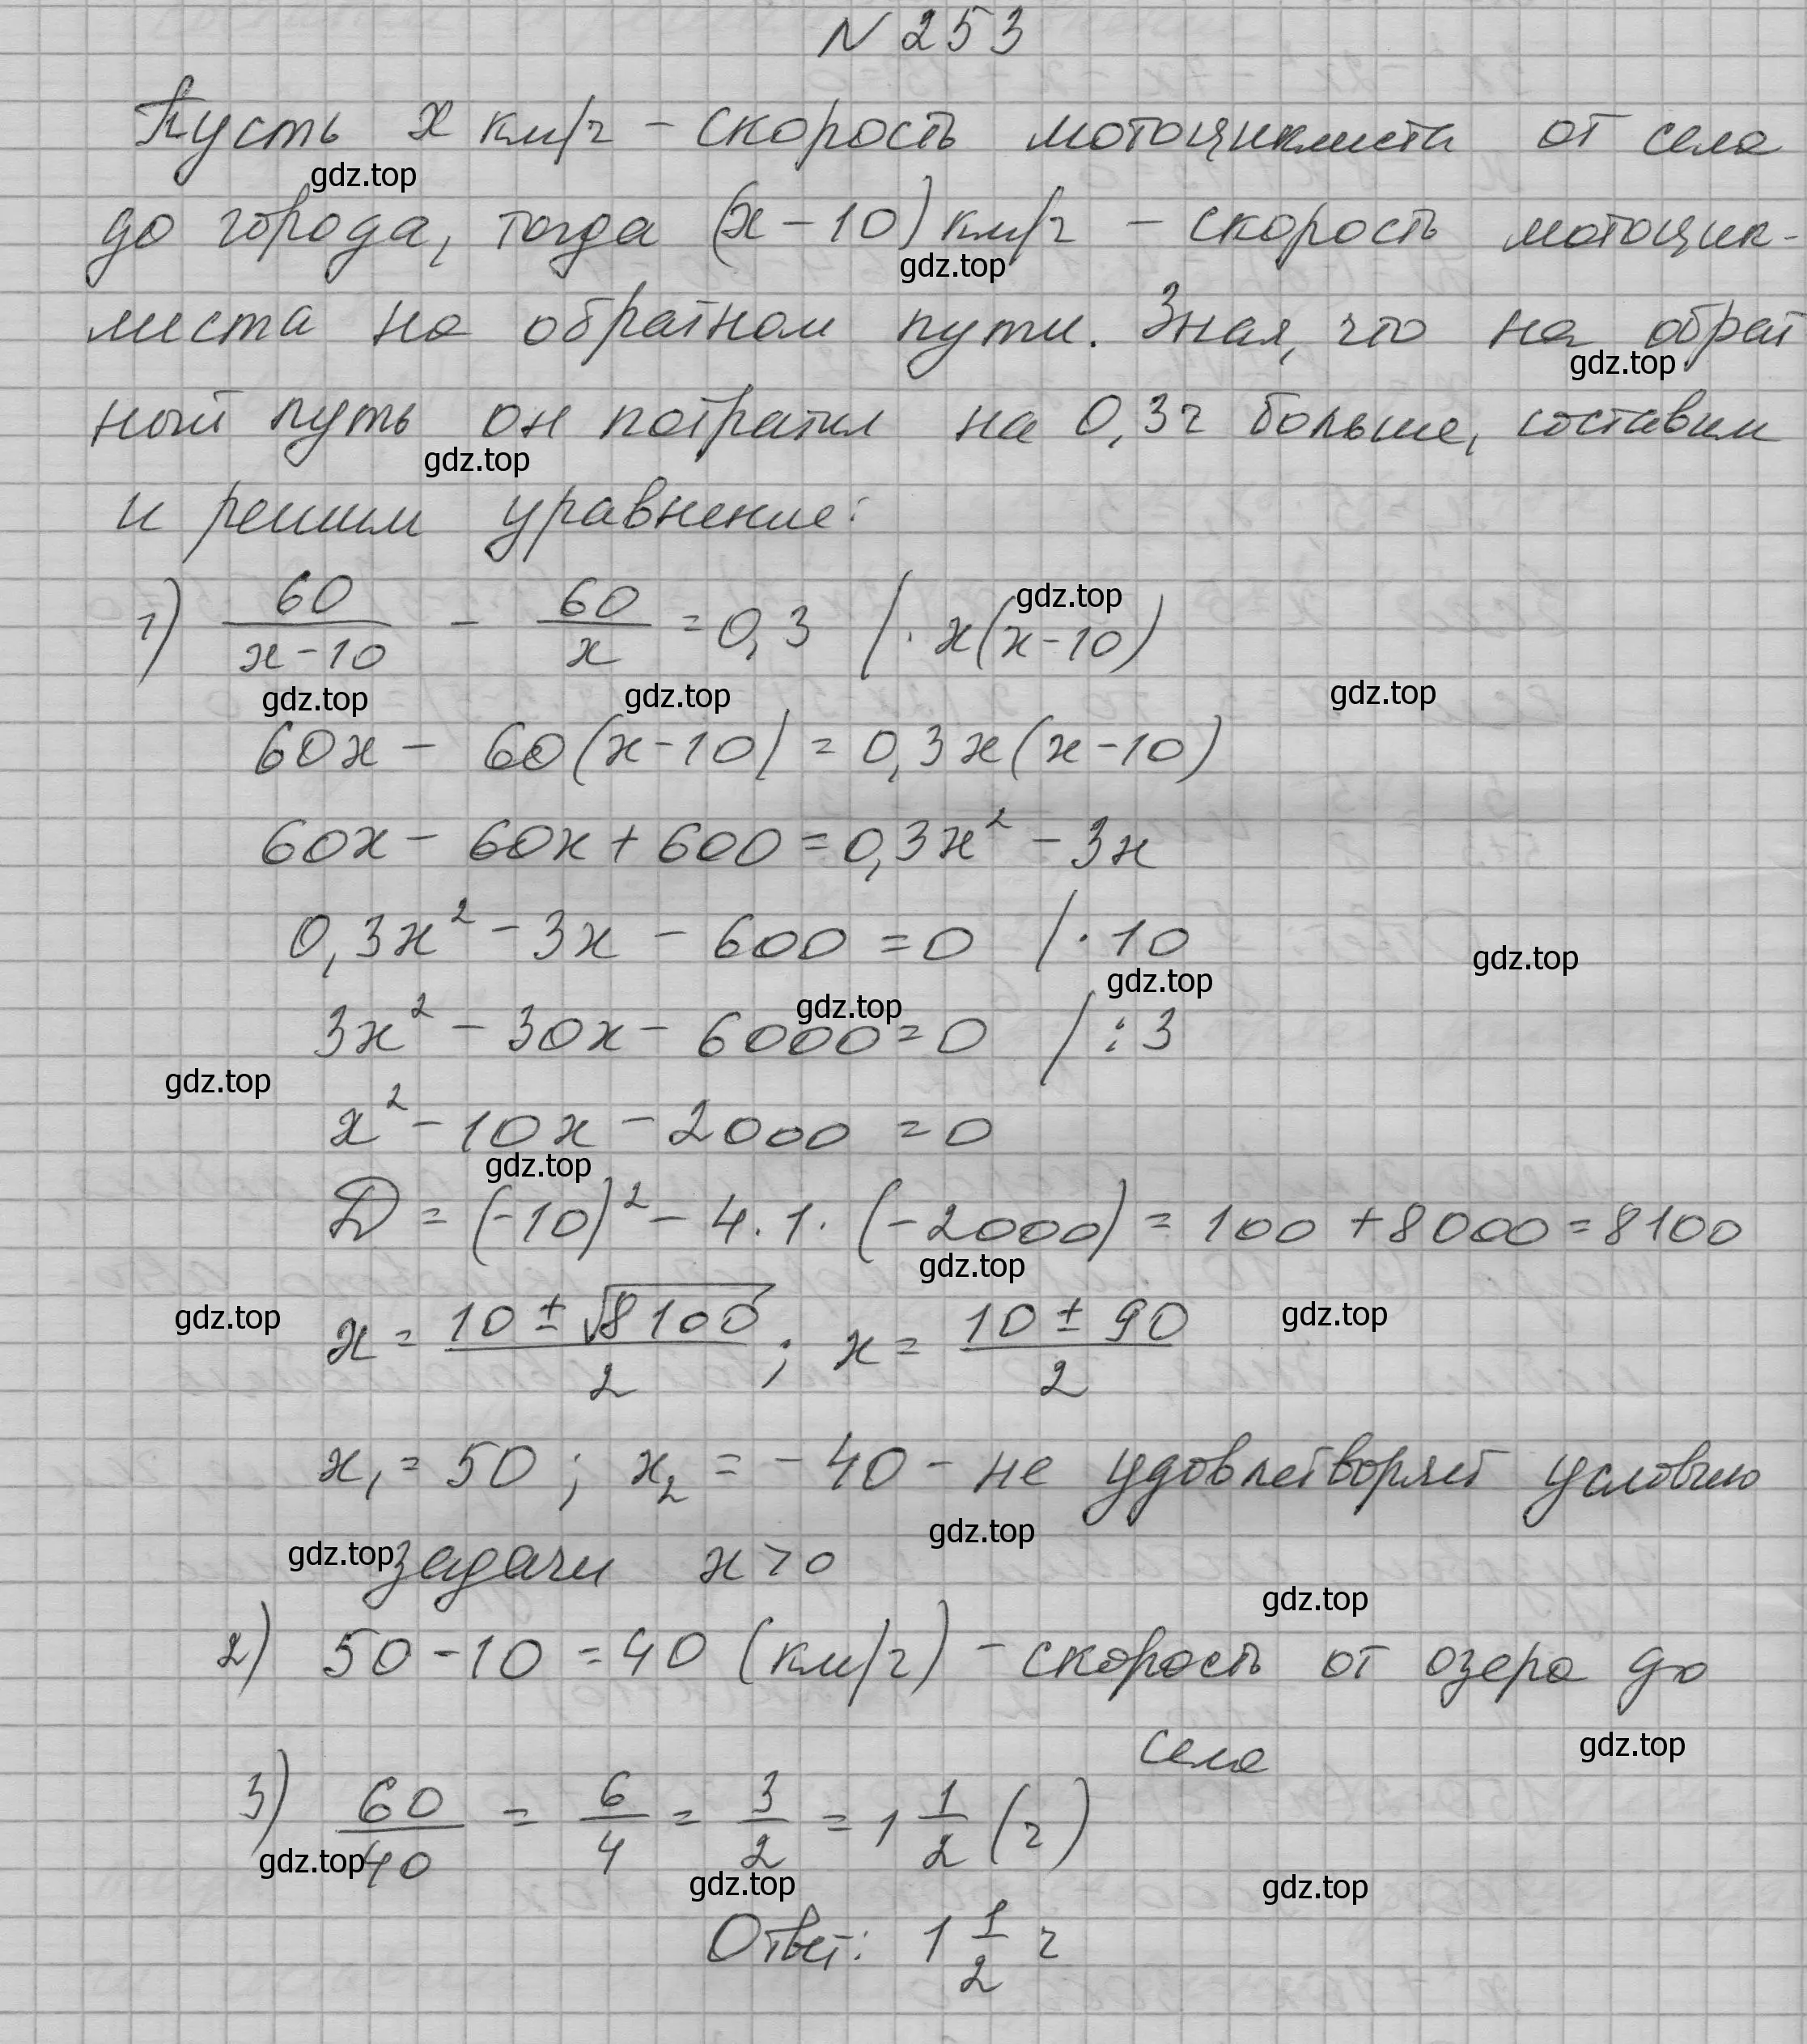 N 253
Пусть x км/ч – скорость мотоциклиста от села
gdz.top
до города, тогда (x – 10) км/ч – скорость мотоцик-
gdz.top
листа на обратном пути. Зная, что на обрат
gdz.top
ный путь он потратил на 0,3 ч больше, составим
gdz.top
и решим уравнение:
1) 60/(x-10) - 60/x = 0,3 / · x(x-10)
gdz.top
gdz.top gdz.top gdz.top
60x - 60(x-10) = 0,3x(x-10)
60x - 60x + 600 = 0,3x² - 3x
0,3x² - 3x - 600 = 0 / · 10
gdz.top gdz.top
gdz.top
3x² - 30x - 6000 = 0 / : 3
gdz.top
x² - 10x - 2000 = 0
gdz.top
D = (-10)² - 4 · 1 · (-2000) = 100 + 8000 = 8100
gdz.top
x = (10 ± √8100)/2 ; x = (10 ± 90)/2
gdz.top gdz.top
x₁ = 50 ; x₂ = - 40 - не удовлетворяет условию
gdz.top
gdz.top
задачи x > 0
gdz.top
2) 50 - 10 = 40 (км/ч) – скорость от озера до
села
gdz.top
3) 60/40 = 6/4 = 3/2 = 1 1/2 (ч)
gdz.top gdz.top gdz.top
Ответ: 1 1/2 ч